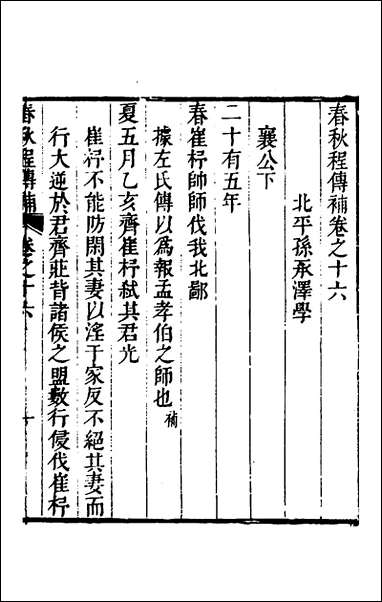 春秋程傳補卷之十六
北平孫承澤學
襄公下
二十有五年
春崔杼帥師伐我北鄙
據左氏傳以爲報孟孝伯之師也補
夏五月乙亥齊崔杼弑其君光
崔杼不能防閑其妻以淫于家反不絕其妻而
行大逆於君齊莊背諸侯之盟數行侵伐崔杼
春秋程傳補 卷之十六 一